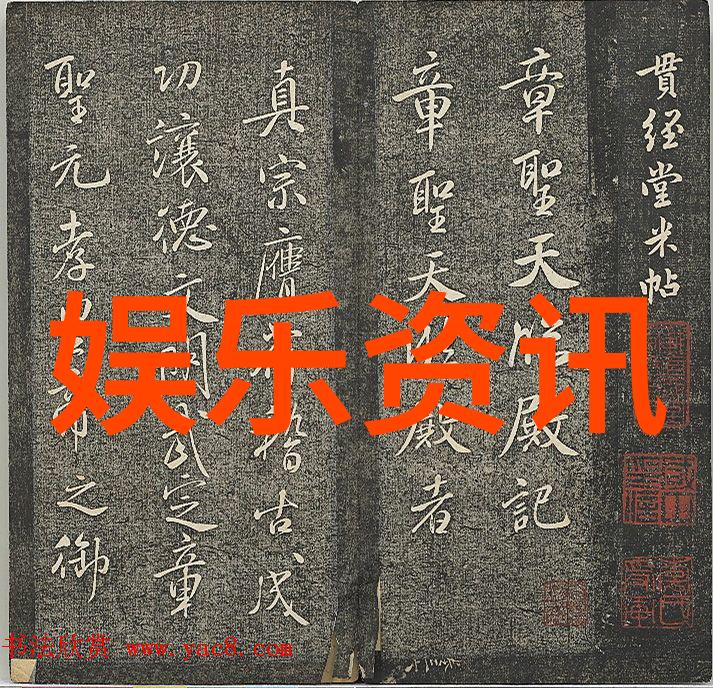 貫經堂米帖
章聖天臨殿記
章聖天臨殿者
真宗膺符稽古成
功讓德文明武定章
聖元孝皇帝之御
娱乐资讯
书法欣赏 www.yac8.com